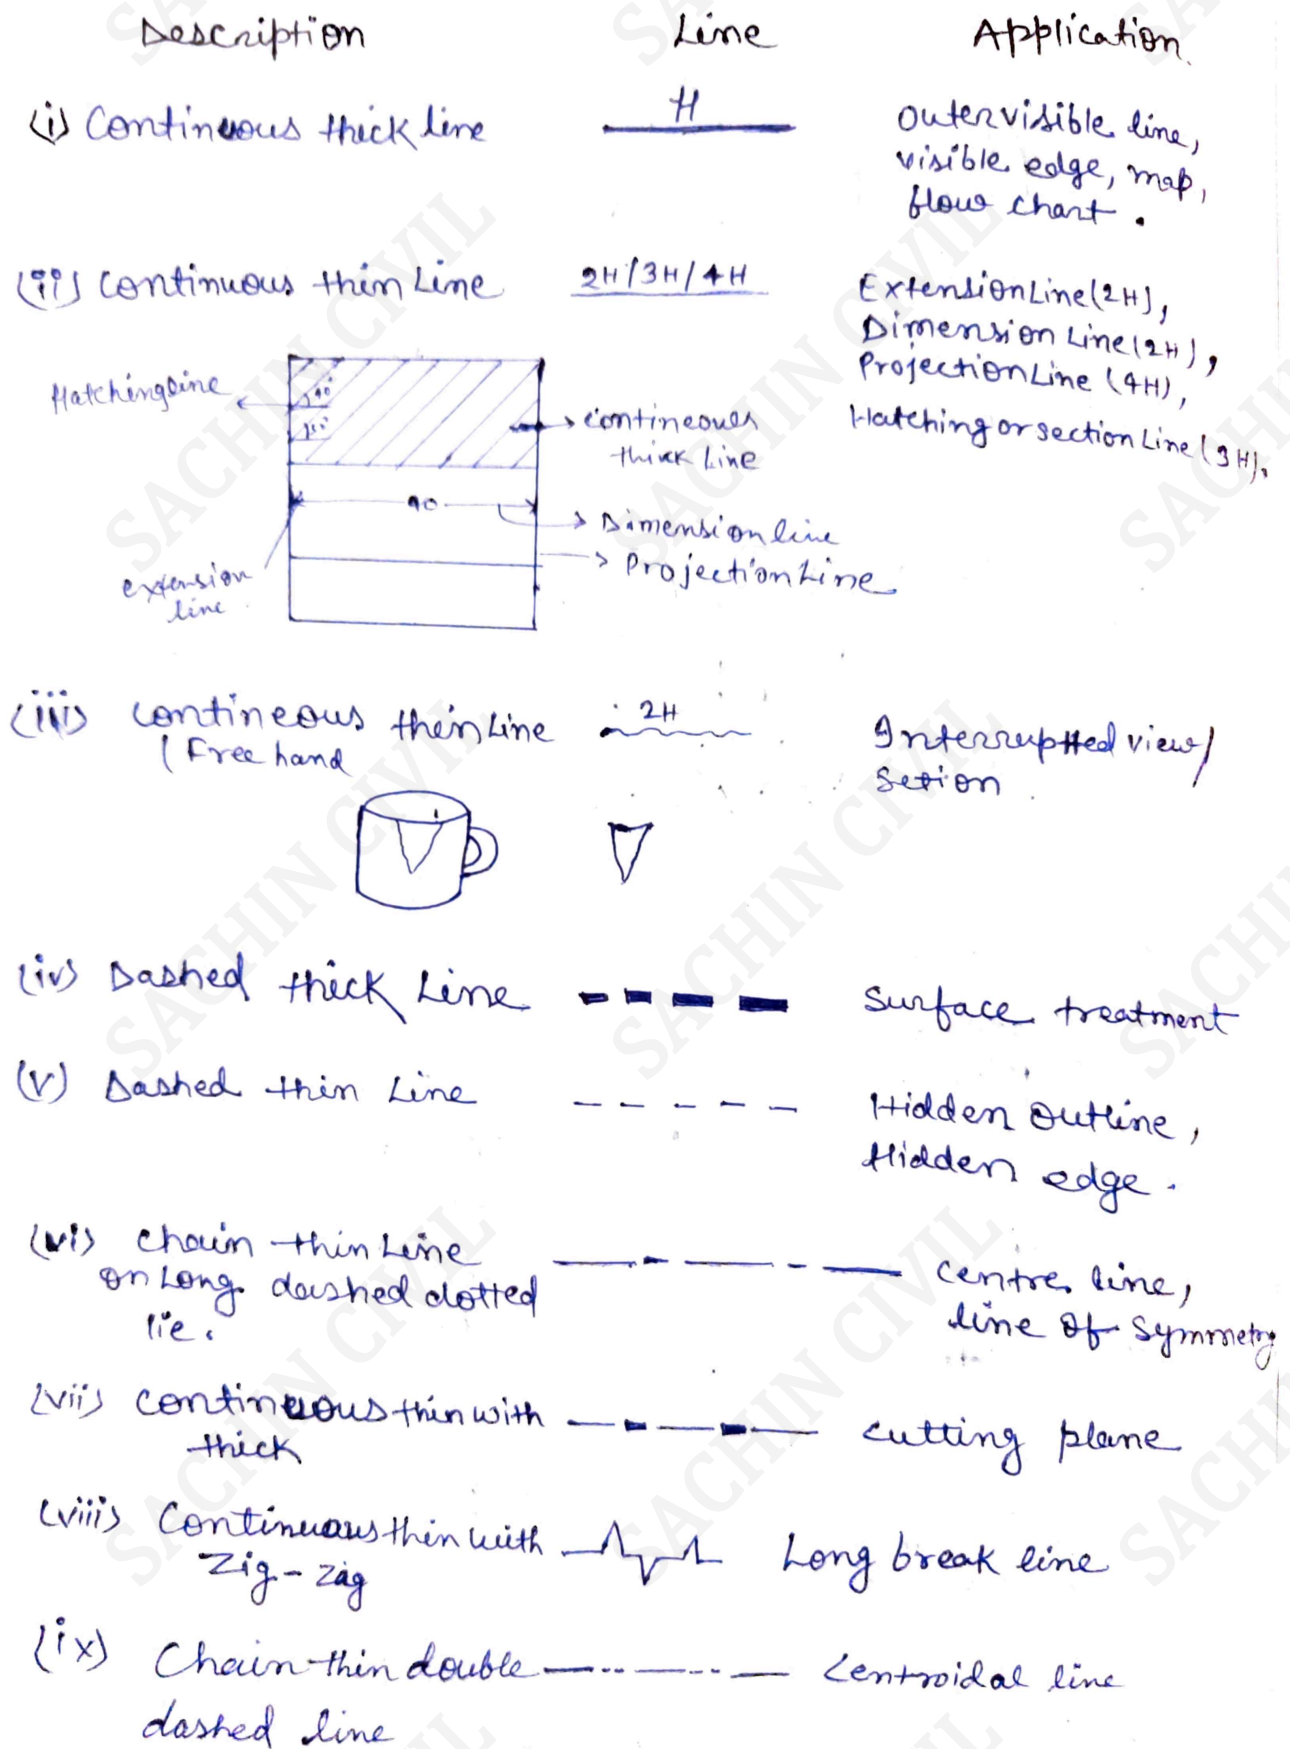 Description Line Application
(i) Continuous thick line H Outer visible line,
visible edge, map,
flow chart.
(ii) Continuous thin Line 2H/3H/4H ExtensionLine(2H),
Dimension Line(2H),
ProjectionLine (4H),
Hatching or section Line (3H).
Hatchingline
contineoues
thick Line
90
Dimension line
ProjectionLine
extension
line
(iii) contineous thin Line 2H Interruptted view/
(Free hand Setion
(iv) Dashed thick Line Surface treatment
(v) Dashed thin Line Hidden outline,
Hidden edge.
(vi) chain thin Line
on Long dashed dotted centre line,
lie. line of symmetry
(vii) continuous thin with cutting plane
thick
(viii) Continuous thin with Long break line
Zig-zag
(ix) Chain thin double Centroidal line
dashed line
SACHIN CIVIL